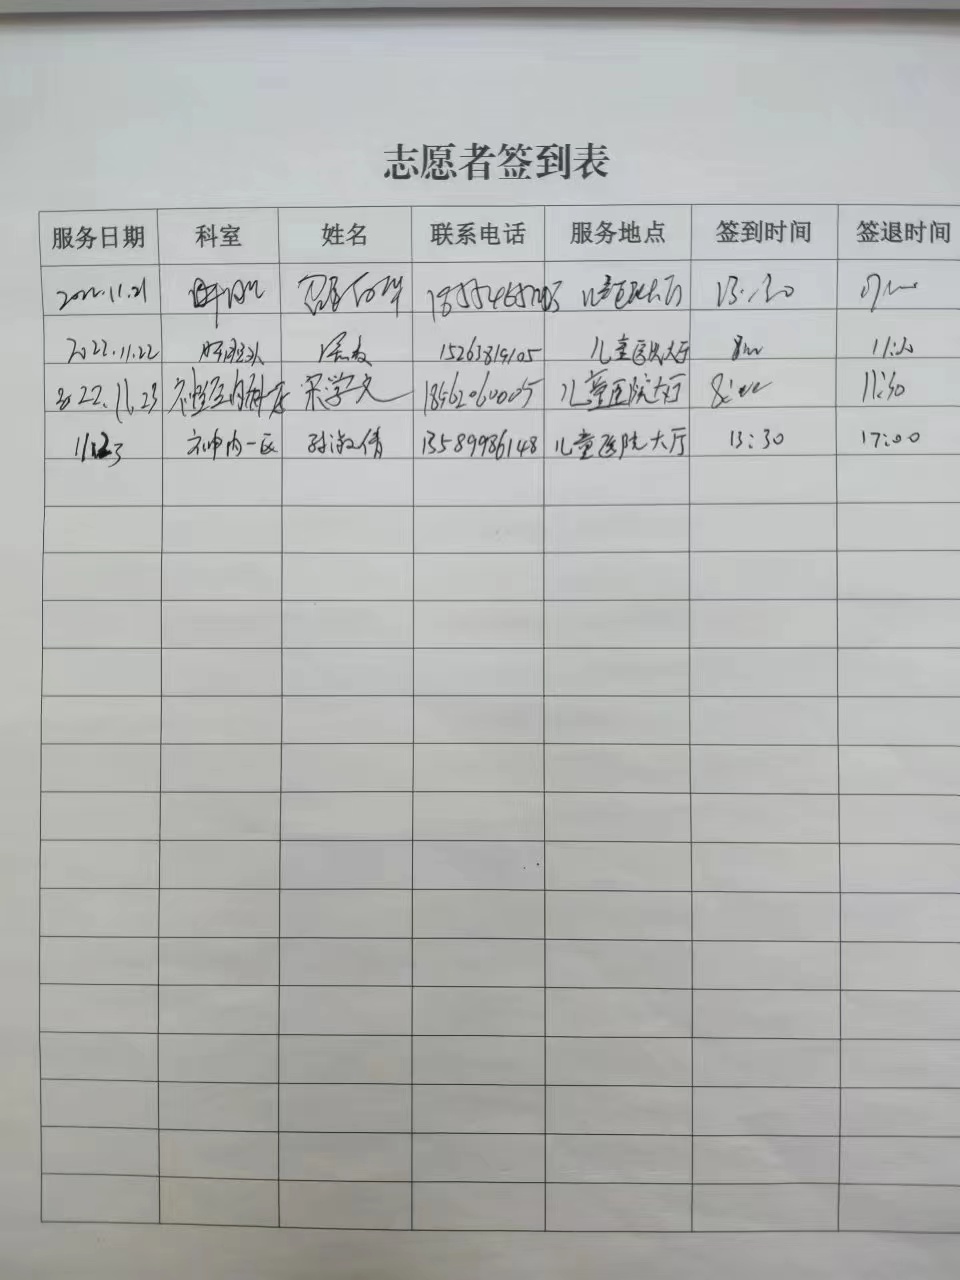 志愿者签到表
服务日期 科室 姓名 联系电话 服务地点 签到时间 签退时间
2022.11.21 儿童医院大厅 13:30
2022.11.22 15263819105 儿童医院大厅 11:30
2022.11.23 宋学文 18462060005 儿童医院大厅 8:00 11:30
11.23 神内一区 孙淑倩 13589986148 儿童医院大厅 13:30 17:00